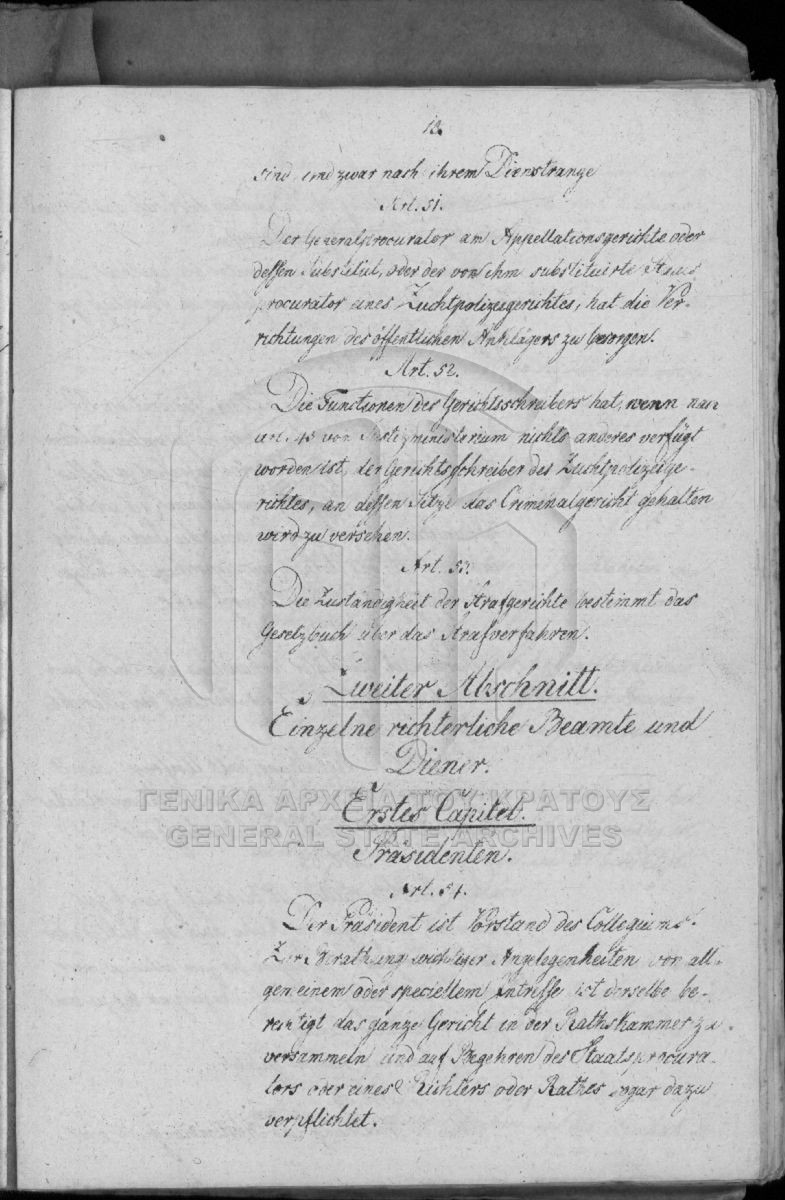 13.
sind, und zwar nach ihrem Dienstrange
Art. 51.
Der Generalprocurator am Appellationsgerichte oder
dessen Substitut, oder der von ihm substituirte Staats
procurator eines Zuchtpolizeigerichtes, hat die Ver-
richtungen des öffentlichen Anklägers zu besorgen.
Art. 52.
Die Functionen des Gerichtsschreibers hat, wenn nach
art. 45 von Justizministerium nichts anderes verfügt
worden ist, der Gerichtsschreiber des Zuchtpolizeige-
richtes, an dessen Sitze das Criminalgericht gehalten
wird zu versehen.
Art. 53.
Die Zuständigkeit der Strafgerichte bestimmt das
Gesetzbuch über das Strafverfahren.
Zweiter Abschnitt.
Einzelne richterliche Beamte und
Diener.
ΓΕΝΙΚΑ ΑΡΧΕΙΑ ΤΟΥ ΚΡΑΤΟΥΣ
Erstes Capitel.
GENERAL STATE ARCHIVES
Präsidenten.
Art. 54.
Der Präsident ist Vorstand des Collegiums.
Zur Berathung wichtiger Angelegenheiten von all-
gemeinem oder speciellem Intresse ist derselbe be-
rechtigt das ganze Gericht in der Rathskammer zu
versammeln und auf Begehren des Staatsprocura-
tors oder eines Richters oder Rathes sogar dazu
verpflichtet.